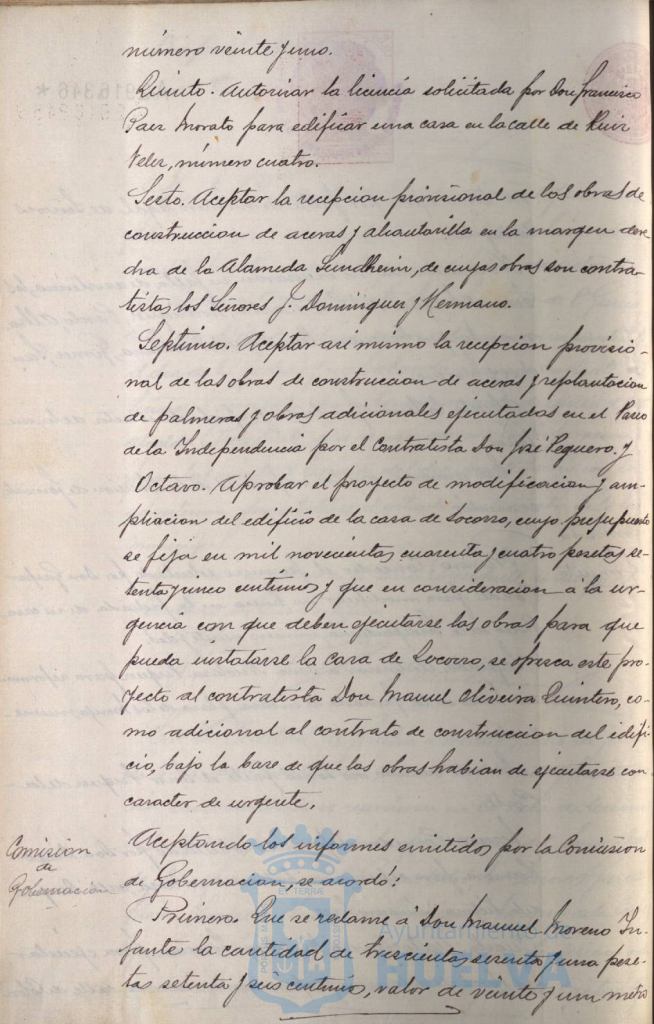 número veinte y uno.
Quinto. Autorizar la licencia solicitada por Don Francisco
Paez Morato para edificar una casa en la calle de Ruiz
Velez, número cuatro.
Sesto. Aceptar la recepcion provisional de las obras de
construccion de aceras y alcantarilla en la margen dere
cha de la Alameda Sundheim, de cuyas obras son contra-
tistas los Señores J. Dominguez y Hermano.
Septimo. Aceptar asi mismo la recepcion provisio-
nal de las obras de construccion de aceras y replantacion
de palmeras y obras adicionales ejecutadas en el Paseo
de la Independencia por el Contratista Don José Peguero. y
Octavo. Aprobar el proyecto de modificacion y am-
pliacion del edificio de la casa de Socorro, cuyo presupuesto
se fija en mil novecientas cuarenta y cuatro pesetas se-
tenta y cinco centimos y que en consideracion á la ur-
gencia con que deben ejecutarse las obras para que
pueda instalarse la Casa de Socorro, se ofrezca este pro-
yecto al contratista Don Manuel Oliveira Quintero, co-
mo adicional al contrato de construccion del edifi-
cio, bajo la base de que las obras habian de ejecutarse con
caracter de urgente.
Comision
de
Gobernación
Aceptando los informes emitidos por la Comision
de Gobernacion, se acordó:
Primero. Que se reclame á Don Manuel Moreno In-
fante la cantidad de trescientas sesenta y una pese-
tas setenta y seis centimos, valor de veinte y un metro
Ayuntamiento
HUELVA